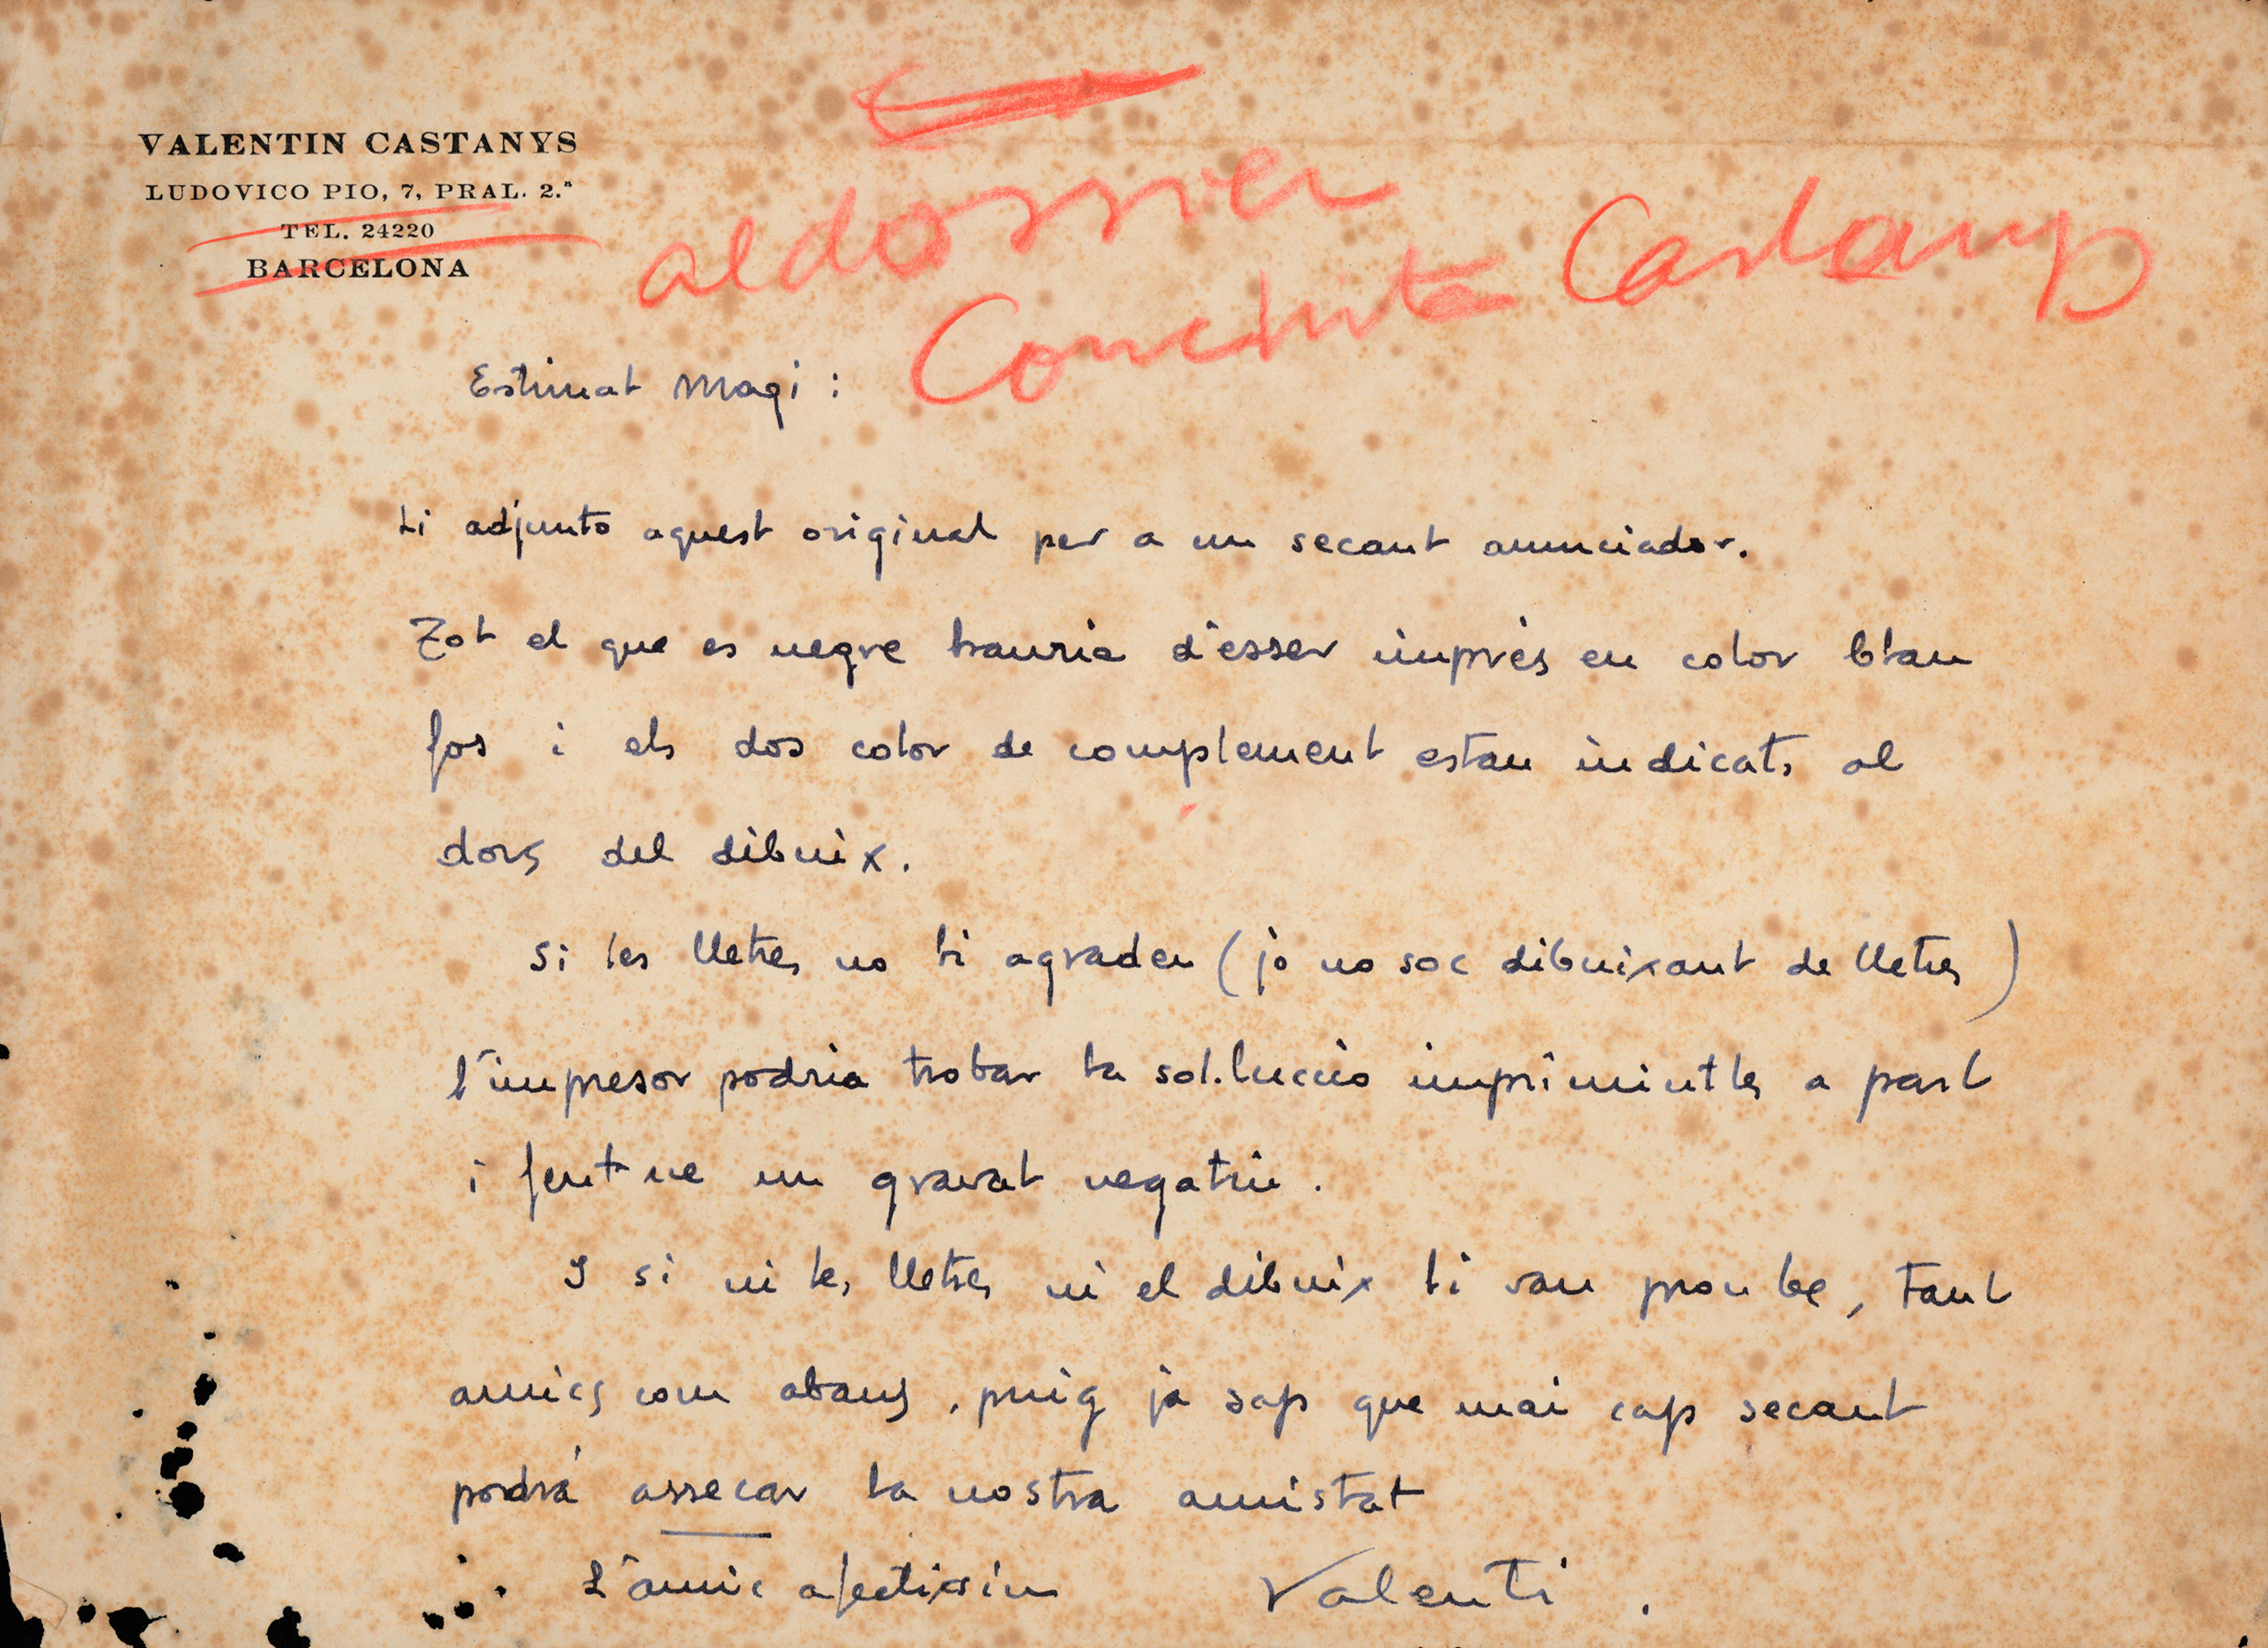 VALENTIN CASTANYS
LUDOVICO PIO, 7, PRAL. 2.ª
TEL. 24220
BARCELONA
al dossier
Conchita Castanys
Estimat Magi :
Li adjunto aquest original per a un secant anunciador.
Tot el que es negre hauria d'esser imprès en color blau
fos i els dos color de complement estan indicats al
dors del dibuix.
Si les lletres no li agraden (jo no soc dibuixant de lletres)
l'impresor podria trobar la sol.lucció imprimintles a part
i fent ne un gravat negatiu.
I si ni les lletres ni el dibuix li van prou be, tant
amics com abans, puig ja sap que mai cap secant
podrá assecar la nostra amistat
L'amic afectissim Valenti.